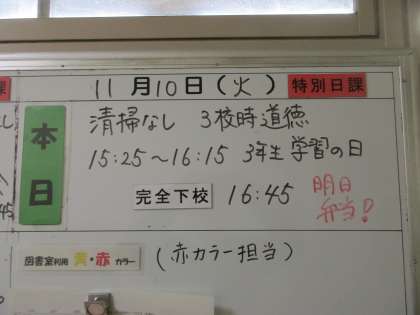 11月10日(火) 特別日課
課
本日
清掃なし 3校時道徳
15:25～16:15 3年生 学習の日
完全下校 16:45
明日
弁当!
45
図書室利用 黄・赤 カラー (赤カラー担当)